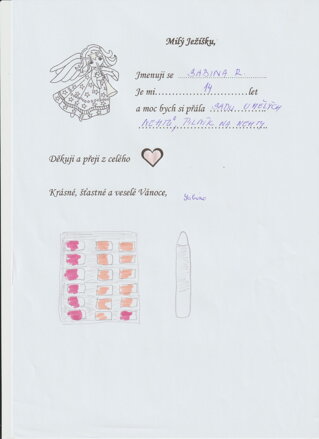 Milý Ježíšku,
Jmenuji se SABINA R.
Je mi 14 let
a moc bych si přála SADU UMĚLÝCH
NEHTŮ, PILNÍK NA NEHTY
Děkuji a přeji z celého
Krásné, šťastné a veselé Vánoce,